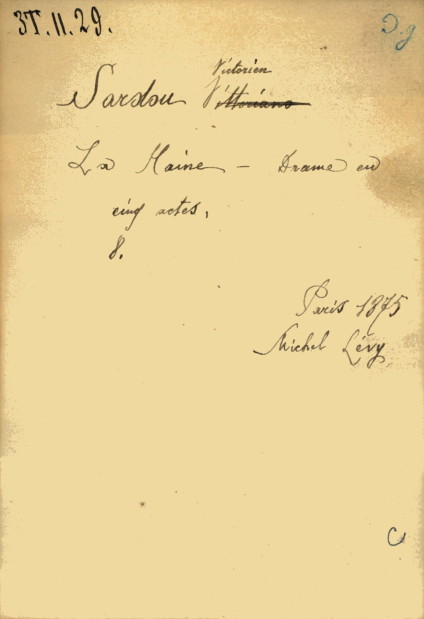 37.11.29.
D.g
Victorien
Sardou Vittoriano
La Haine – Drame en
cinq actes.
8.
Paris 1875
Michel Lévy
C